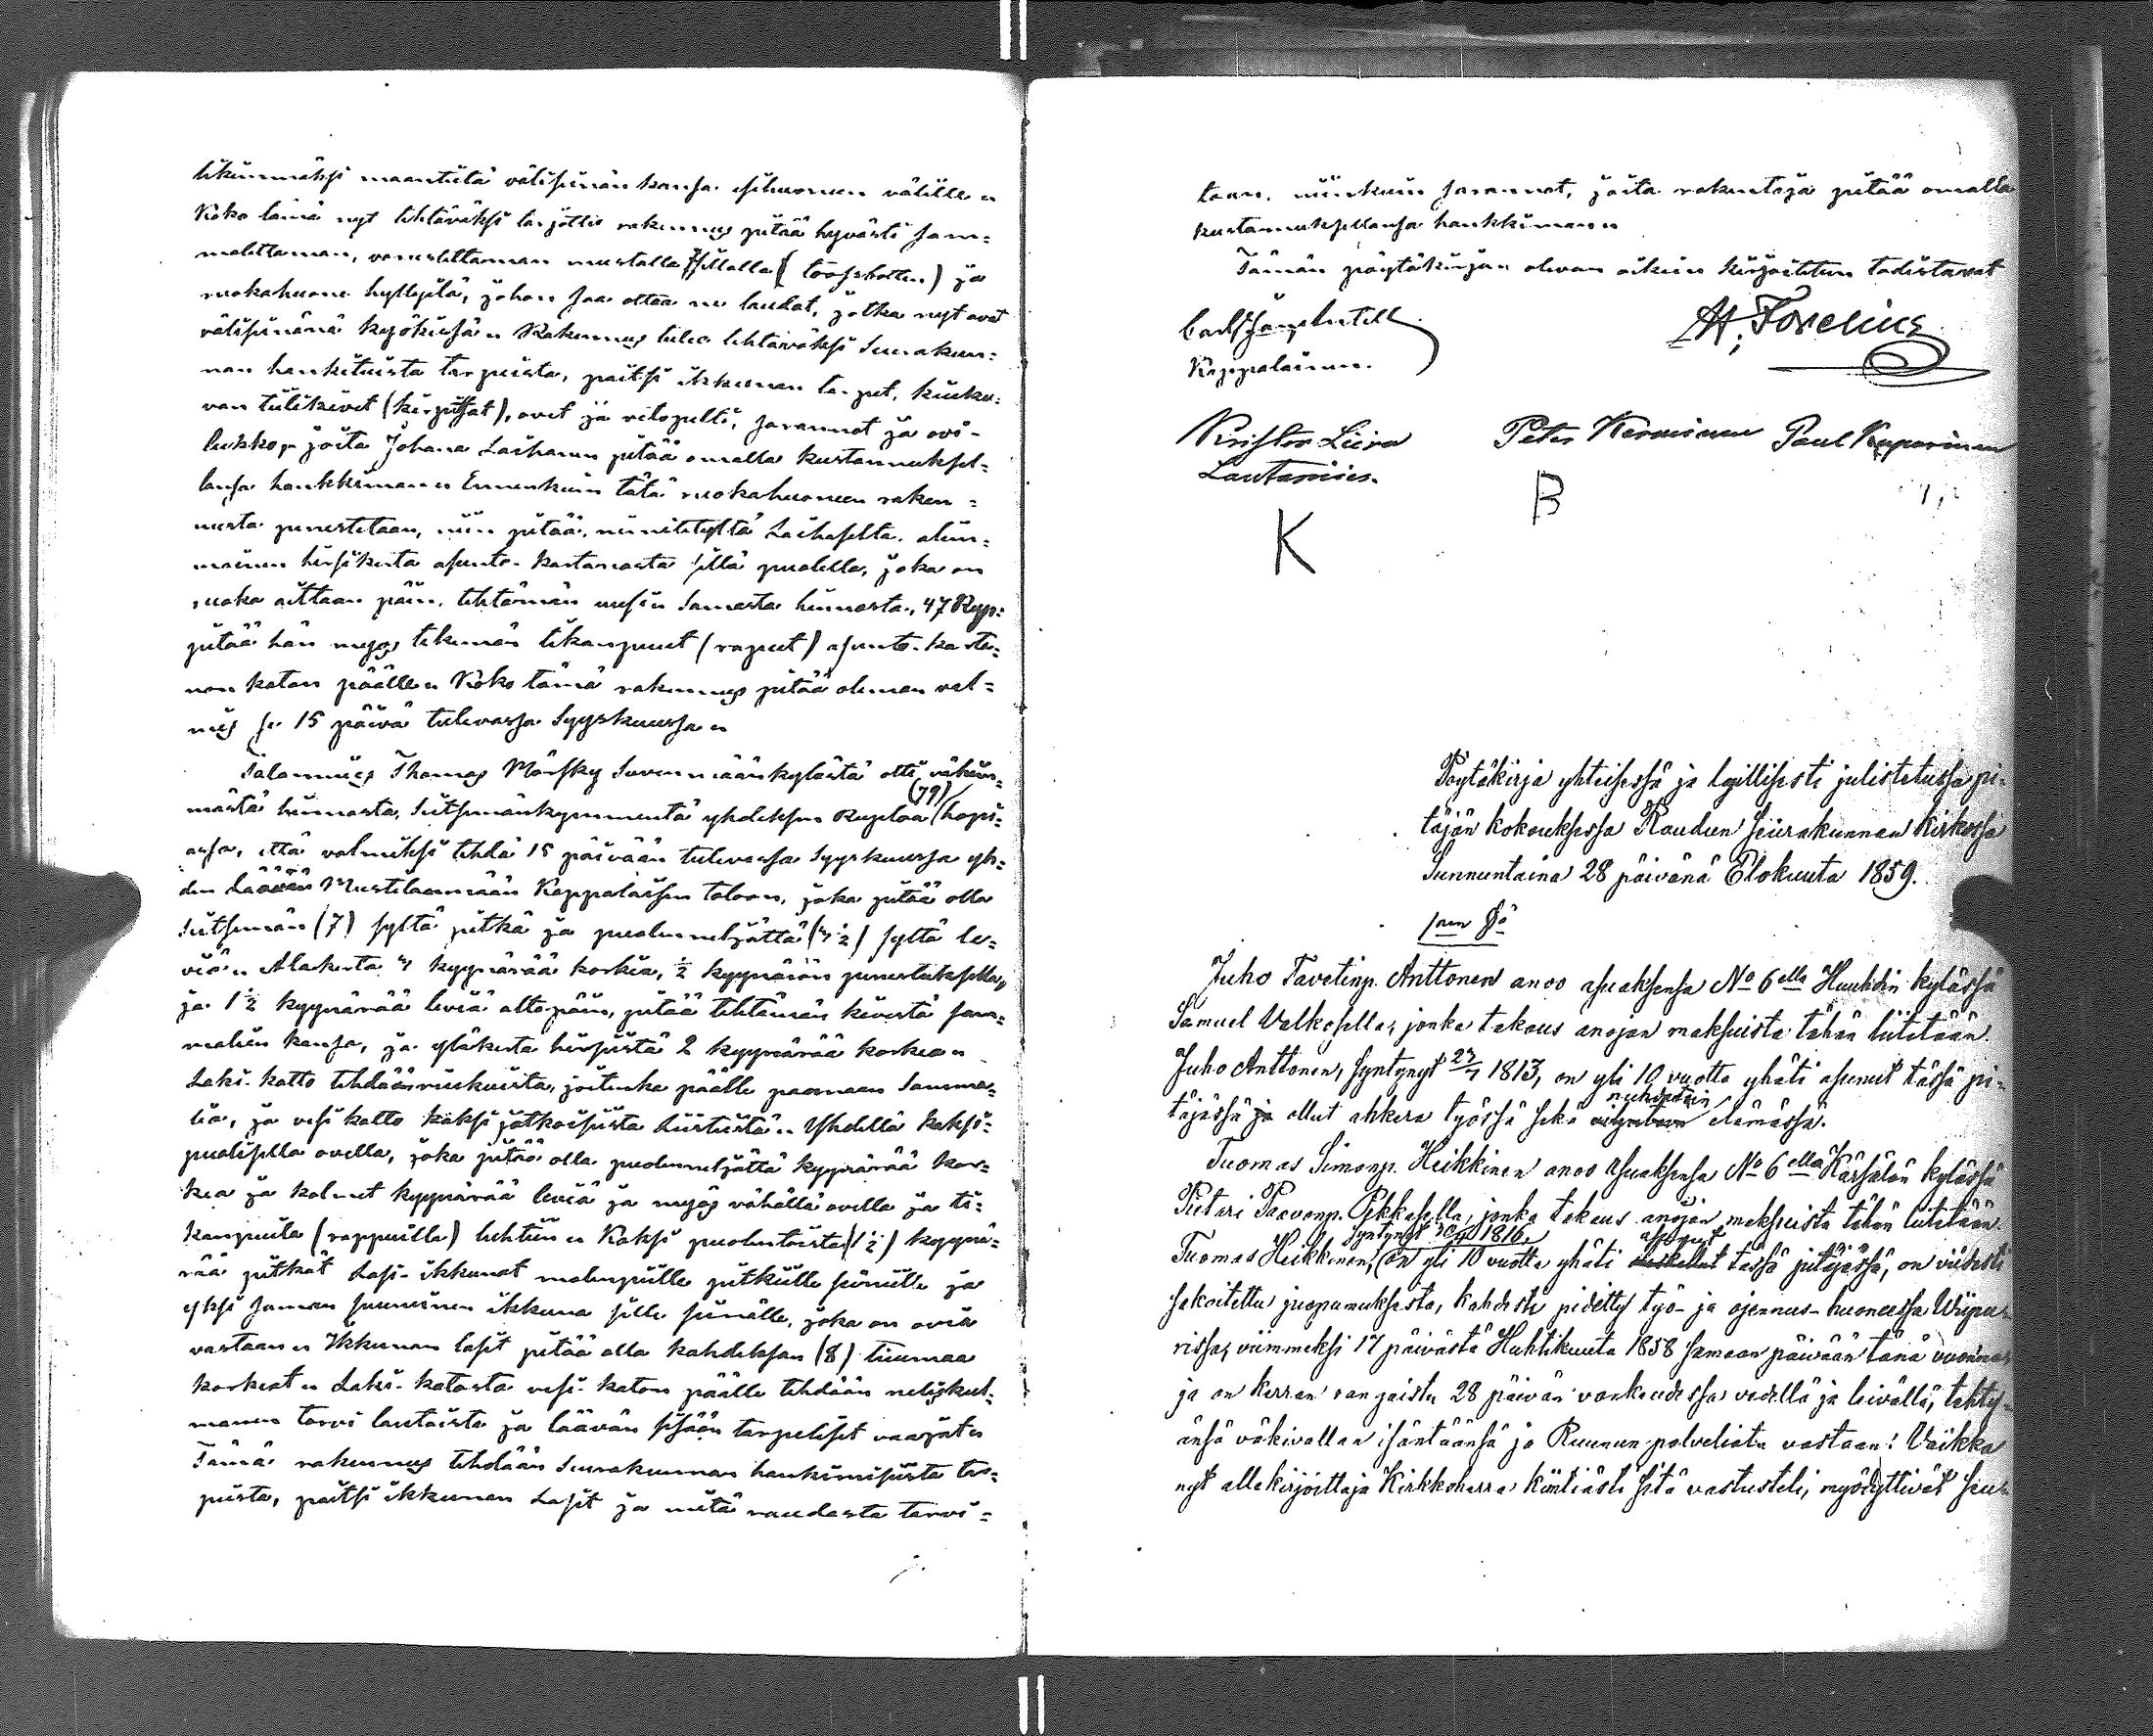 likimmäksi maantietä välisinän kansa esihuoneen välille
Koko tämä nyt tehtäväksi tarjottu rakennus pitää hyvästi sam=
malettaman, varustettaman mustalla sillalla (trossbotten) ja
ruokahuone hyllyilä, johon saa ottaa ne laudat, jotka nyt ovat
välisinänä kyökiisä Rakennus tulee tehtäväksi Seurakun=
nan hankituista tarpeista, paitsi ikkunan tarpeet, kiuku=
van tiilikivet (kirpitsat), ovet ja vitopelti, sarannat ja ovi-
lukko, joita Johana Laihanen pitää omalla kustannuksel=
lansa hankkiman Ennenkuin tätä ruokahuoneen raken=
nusta perustetaan, niin pitää nimitetyltä Laihaselta alim=
mainen hirsikerta asunto-kartanosta sillä puolella, joka on
ruoka aittaan päin, tehtämän uusin Samasta hinnasta, 47 Rup:
pitää hän myös tekemän tikanpuut (raput) asunto-karta=
non katon päälle Koko tämä rakennus pitää oleman val=
mis se 15 päivä tulevassa Syyskuussa
Talonmies Thomas Mönsky Suvenmäänkylästä otti vähim=
mästä hinnasta, Seitsemänkymmentä yhdeksän (79) Ruplaa hopi=
assa, että valmiiksi tehdä 15 päivään tulevassa Syyskuussa yh=
den Läävän Mustilanmään Kappalaisen taloon, joka pitää olla
Seitsemän (7) syltä pitkä ja puolenneljättä (3½) syltä le=
viä Alakerta 4 kyynärää korkia, ½ kyynärän perustuksella,
ja 1½ kyynärää leviä altapäin, pitää tehtämän kivestä sam=
malien kansa, ja yläkerta hirsistä 2 kyynärää korkia
Laki-katto tehdään riukuista, joitenka päälle pannaan Samma=
lia, ja vesi katto kaksi jatkoisista liisteistä Yhdellä kaksi=
puolisella ovella, joka pitää olla puolenneljättä kyynärää kor=
kia ja kolmet kyynärää leviä ja myös vähällä ovella ja ti=
kanpuila (rappuilla) lehtiin Kaksi puolentoista (1½) kyynä=
rää pitkät Lasi-ikkunat molempiille pitkiille siniille ja
yksi saman suuruinen ikkuna sille sinälle, joka on oviä
vastaan Ikkunan lasit pitää olla kahdeksan (8) tuumaa
korkiat Laki-katosta vesi-katon päälle tehdään neliskul=
manen torvi laudoista ja läävän sisään tarpeliset vaajat
Tämä rakennus tehdään Seurakunnan hankimisista tar=
peista, paitsi ikkunan Lasit ja mitä raudasta tarvi=
taan, niinkuin sarannat, joita rakentaja pitää omalla
kustannuksellansa hankkiman
Tämän pöytäkirjan olevan oikein kirjoitetun todistavat
A. Forelius
Kappalainen.
Krister Liira Peter Kerminen Paul Kuparinen
Lautamies.
B
K
Pöytäkirja yhteisessä ja laillisesti julistetussa pi-
täjän kokouksessa Raudun Seurakunnan kirkossa
Sunnuntaina 28 päivänä Elokuuta 1859.
1nen §ö
Juho Tavetinp. Anttonen anoo asuaksensa No 6ella Huuhdin kylässä
Samuel Valkosella, jonka takaus anojan maksuista tähän liitetään.
Juho Anttonen, syntynyt 1813, on yli 10 vuotta yhäti asunut tässä pi-
täjässä ja ollut ahkera työssä sekä nuhdetoin elämässä.
Tuomas Simonp. Heikkinen anoo asuaksensa No 6ella Kärsälän kylässä
Pietari Paavonp. Pekkasella, jonka takaus anojan maksuista tähän liitetään.
syntynyt 1816,
Tuomas Heikkinen, on yli 10 vuotta yhäti asunut tässä pitäjässä, on viidesti
sakoitettu juopumuksesta, kahdesti pidetty työ- ja ojennus-huoneessa Wiipu-
rissa, viimmeksi 17 päivästä Huhtikuuta 1858 samaan päivään tänä vuonna,
ja on kerran rangaistu 28 päivän vankeudessa vedellä ja leivällä, tehty-
änsä väkivallan isäntäänsä ja Ruunun palveliata vastaan! Vaikka
nyt allekirjoittaja Kirkkoherra kiintiästi sitä vastusteli, myödyttivät seu-